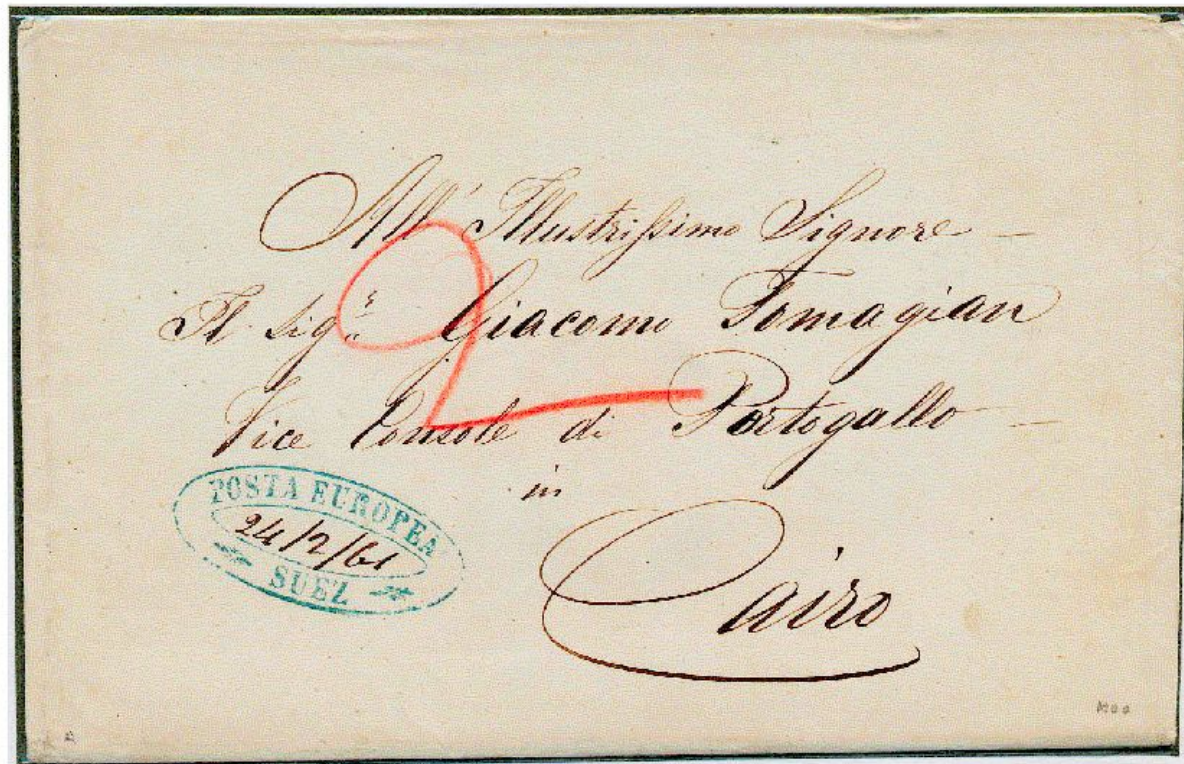 All' Illustrissimo Signore
Il Sigr. Giacomo Tomagian
Vice Console di Portogallo
in
Cairo
2
POSTA EUROPEA
24/2/61
SUEZ